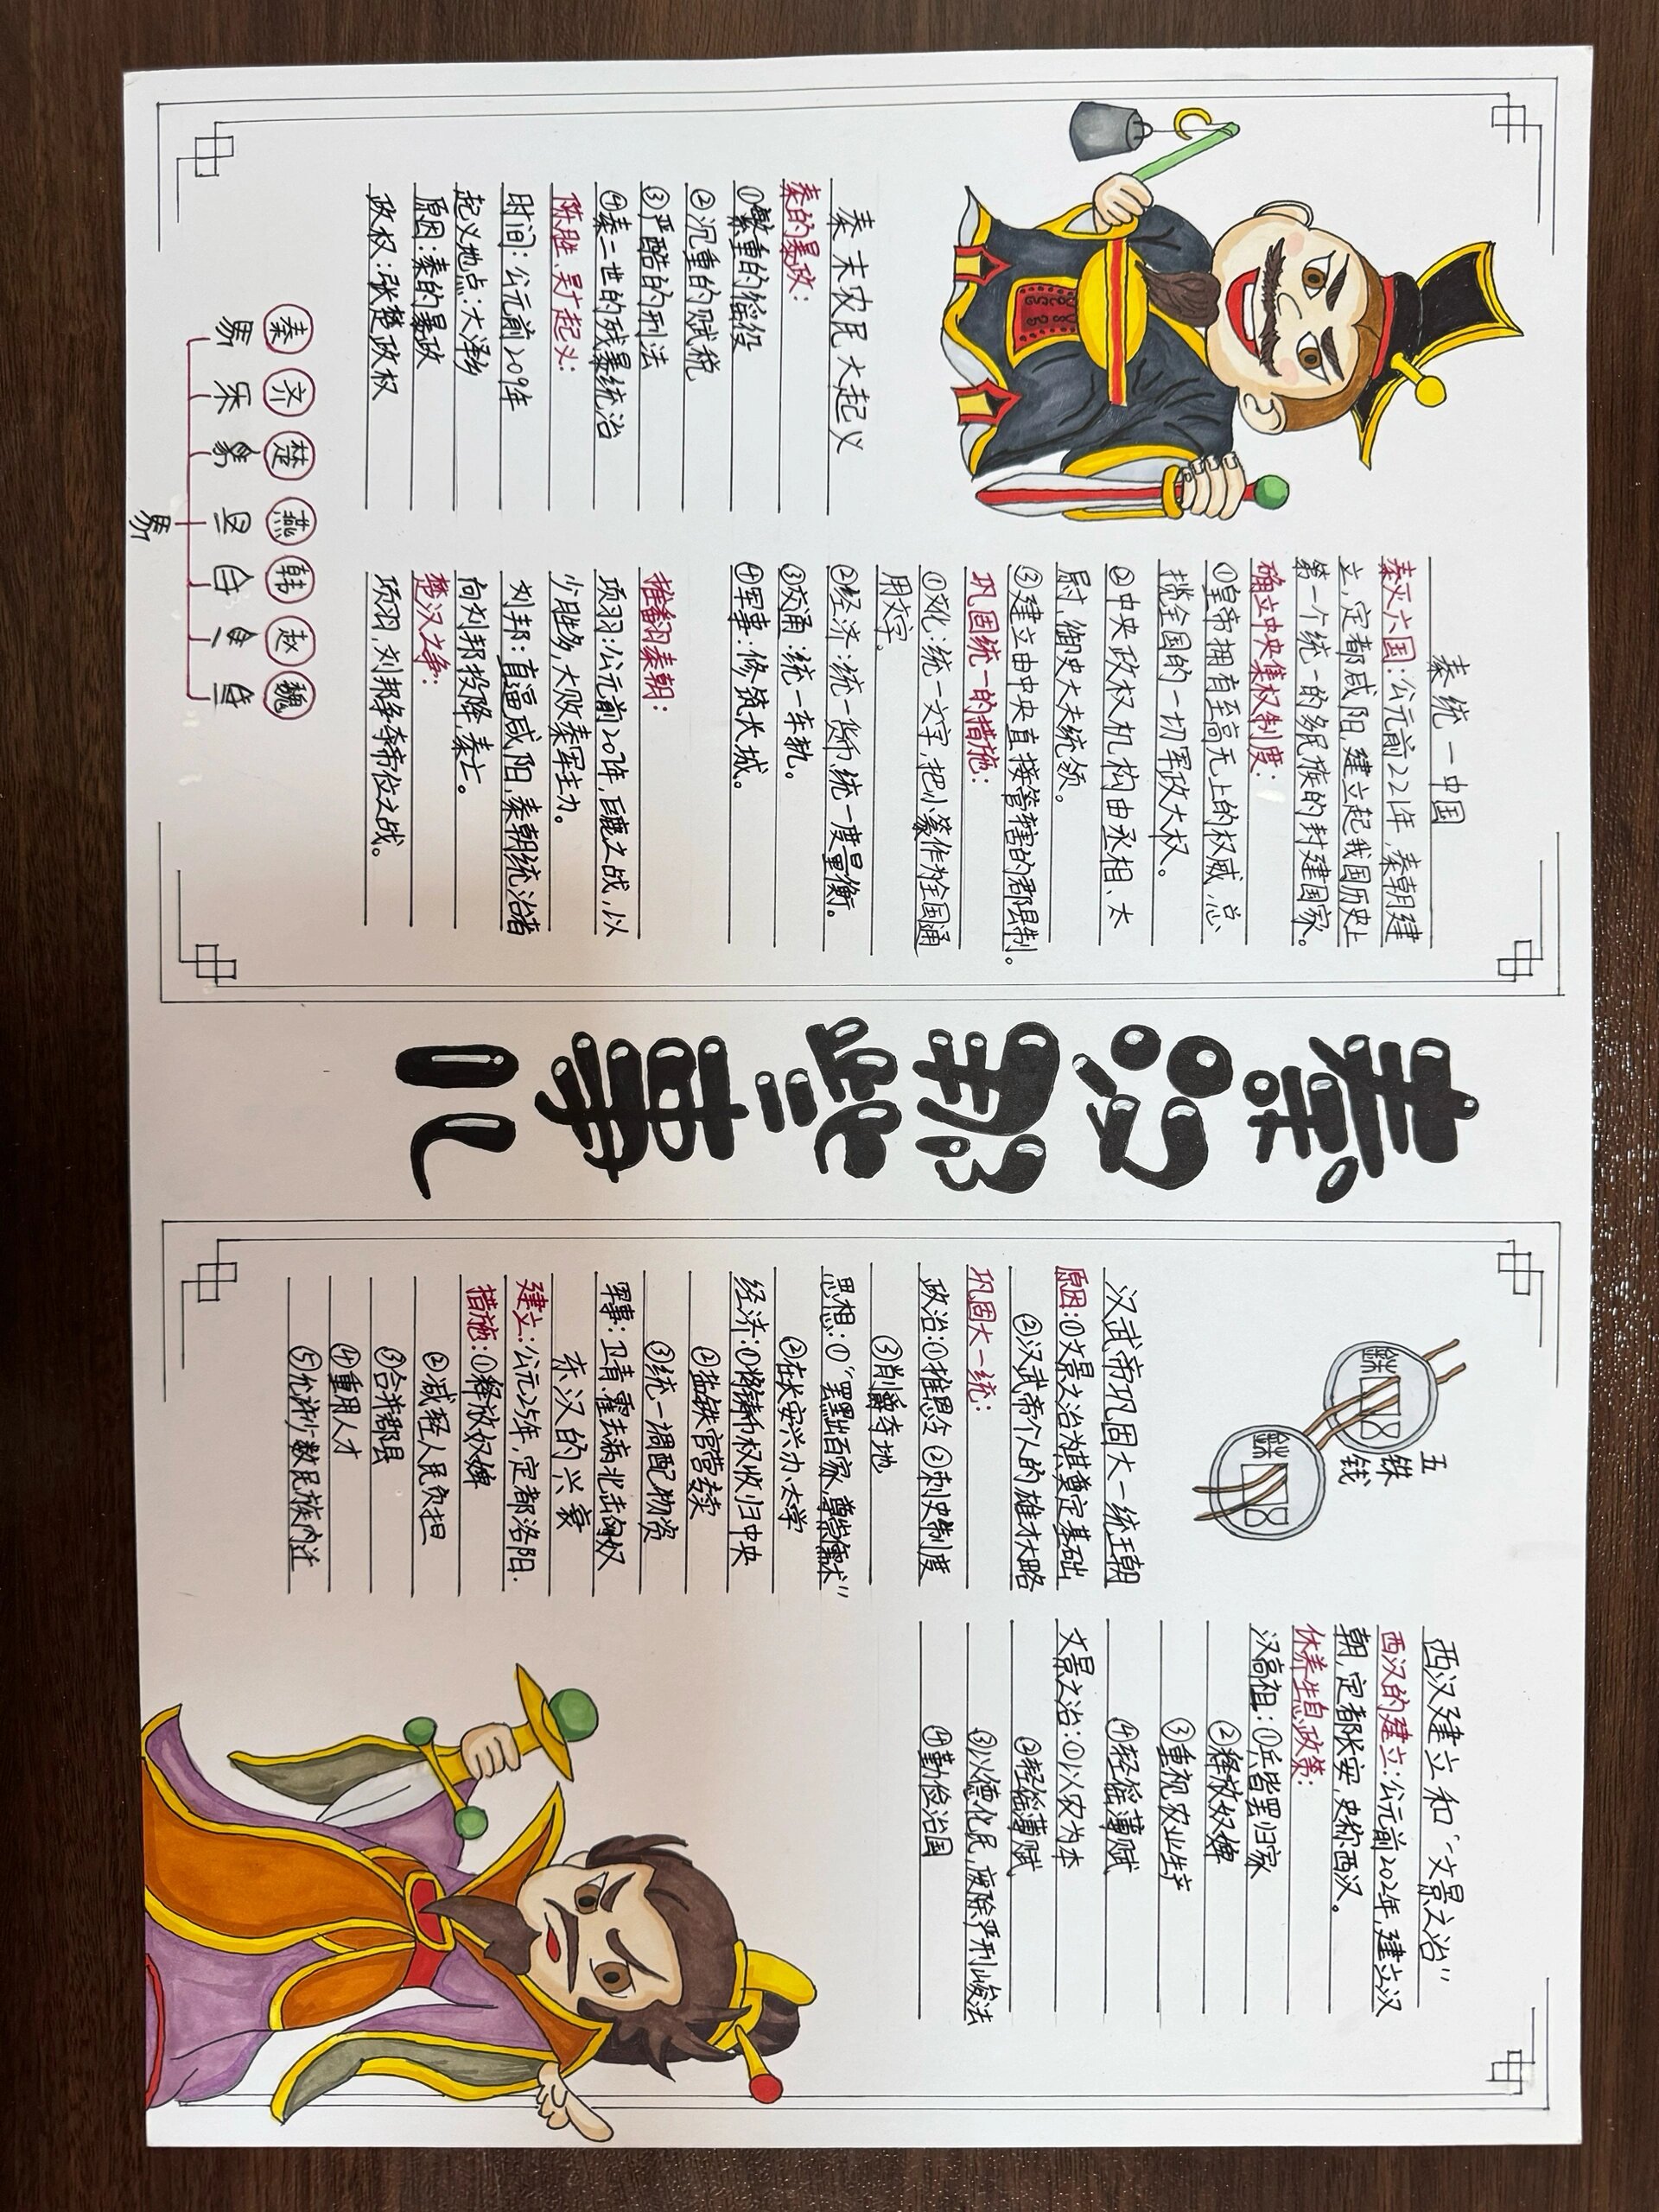 秦汉那些事儿
秦统一中国
秦灭六国:公元前221年,秦朝建
立,定都咸阳,建立起我国历史上
第一个统一的多民族的封建国家。
确立中央集权制度:
①皇帝拥有至高无上的权威,总
揽全国的一切军政大权。
②中央政权机构由丞相、太
尉、御史大夫统领。
③建立由中央直接管辖的郡县制。
巩固统一的措施:
①文化:统一文字,把小篆作为全国通
用文字。
②经济:统一货币,统一度量衡。
③交通:统一车轨。
④军事:修筑长城。
秦末农民大起义
秦的暴政:
①繁重的徭役
②沉重的赋税
③严酷的刑法
④秦二世的残暴统治
陈胜吴广起义:
时间:公元前209年
起义地点:大泽乡
原因:秦的暴政
政权:张楚政权
推翻秦朝:
项羽:公元前207年,巨鹿之战,以
少胜多,大败秦军主力。
刘邦:直逼咸阳,秦朝统治者
向刘邦投降秦亡。
楚汉之争:
项羽,刘邦争夺帝位之战。
秦 齐 楚 燕 韩 赵 魏
五
铢
钱
西汉建立和“文景之治”
西汉的建立:公元前202年,建立汉
朝,定都长安,史称西汉。
休养生息政策:
汉高祖:①兵皆罢归家
②释放奴婢
③重视农业生产
④轻徭薄赋
文景之治:①以农为本
②轻徭薄赋
③以德化民,废除严刑峻法
④勤俭治国
汉武帝巩固大一统王朝
原因:①文景之治为其奠定基础
②汉武帝个人的雄才大略
巩固大一统:
政治:①推恩令 ②刺史制度
③削爵夺地
思想:①“罢黜百家,尊崇儒术”
②在长安兴办太学
经济:①将铸币权收归中央
②盐铁官营专卖
③统一调配物资
军事:卫青、霍去病北击匈奴
东汉的兴衰
建立:公元25年,定都洛阳.
措施:①释放奴婢
②减轻人民负担
③合并郡县
④重用人才
⑤允许少数民族内迁